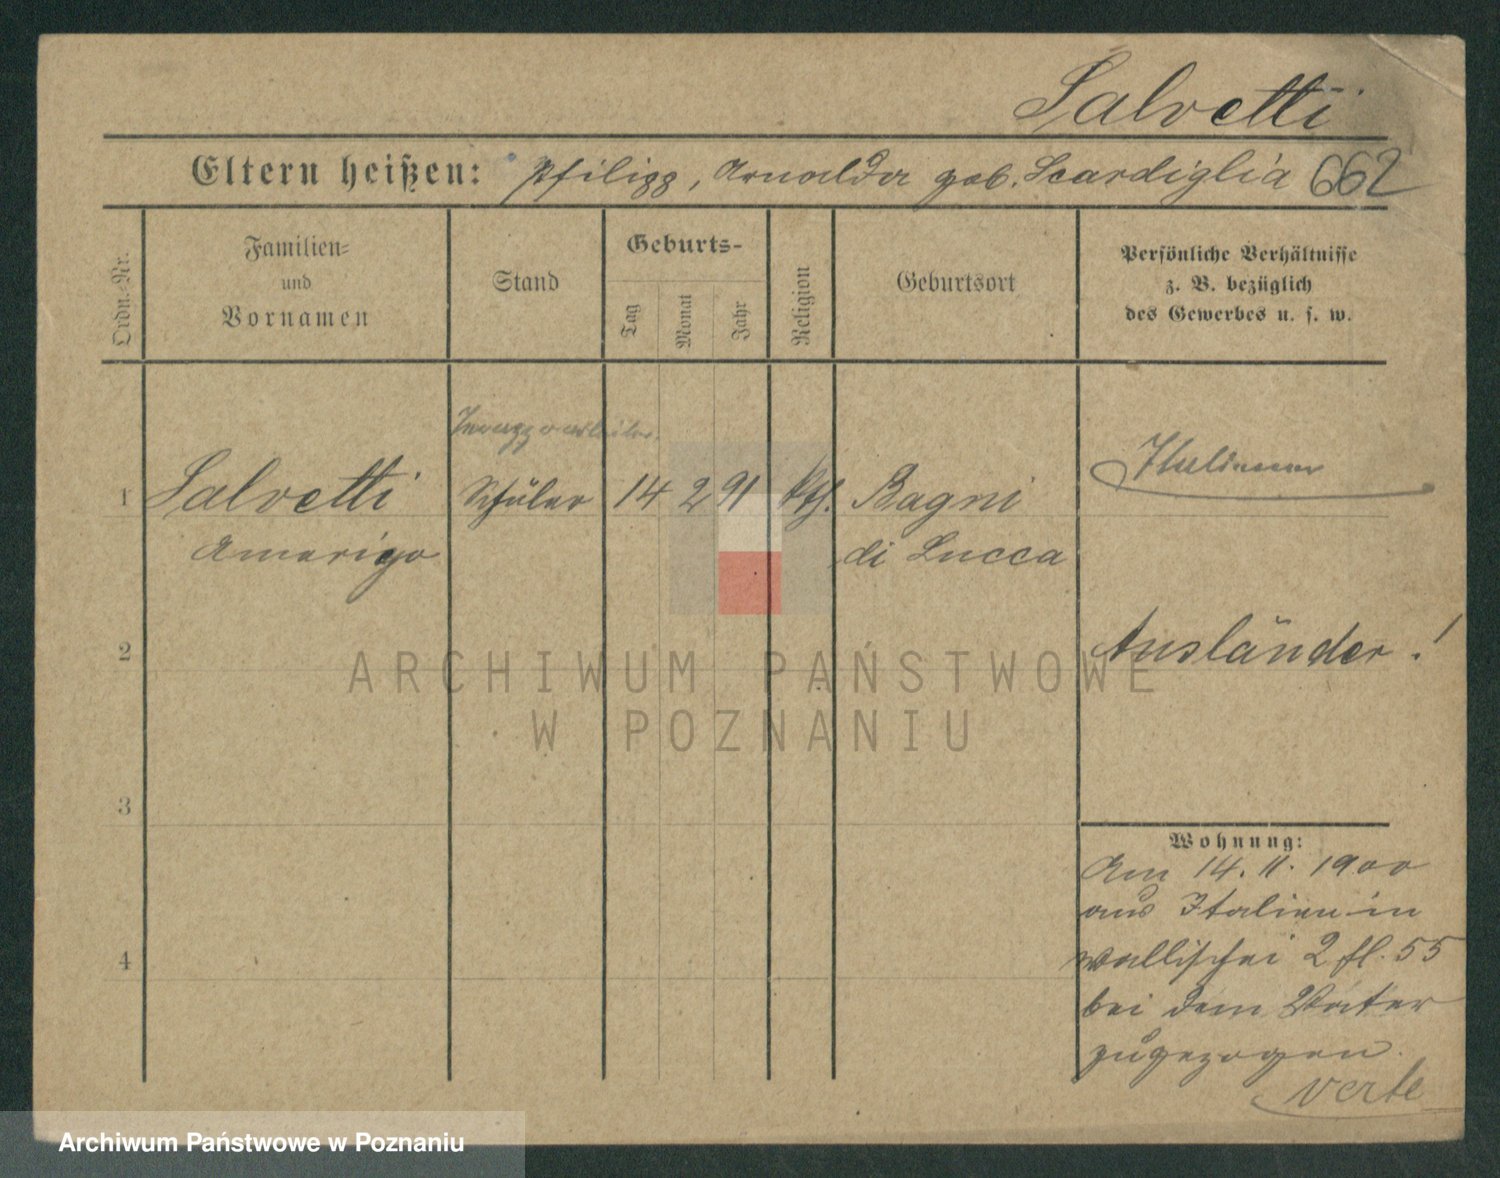 Salvetti
Eltern heißen: Philipp, Arnolda geb. Scardiglia 662
Ordn.-Nr.
Familien-
und
Vornamen
Stand
Geburts-
Tag
Monat
Jahr
Religion
Geburtsort
Persönliche Verhältnisse
z. B. bezüglich
des Gewerbes u. s. w.
Terazzoarbeiter
1 Salvetti Schüler 14 2 91 kth. Bagni Italiener
Amerigo di Lucca
2 Ausländer!
3
4
Wohnung:
Am 14. 11. 1900
aus Italien in
Wallischei 2 fl. 55
bei dem Vater
zugezogen.
verte
ARCHIWUM PAŃSTWOWE
W POZNANIU
Archiwum Państwowe w Poznaniu